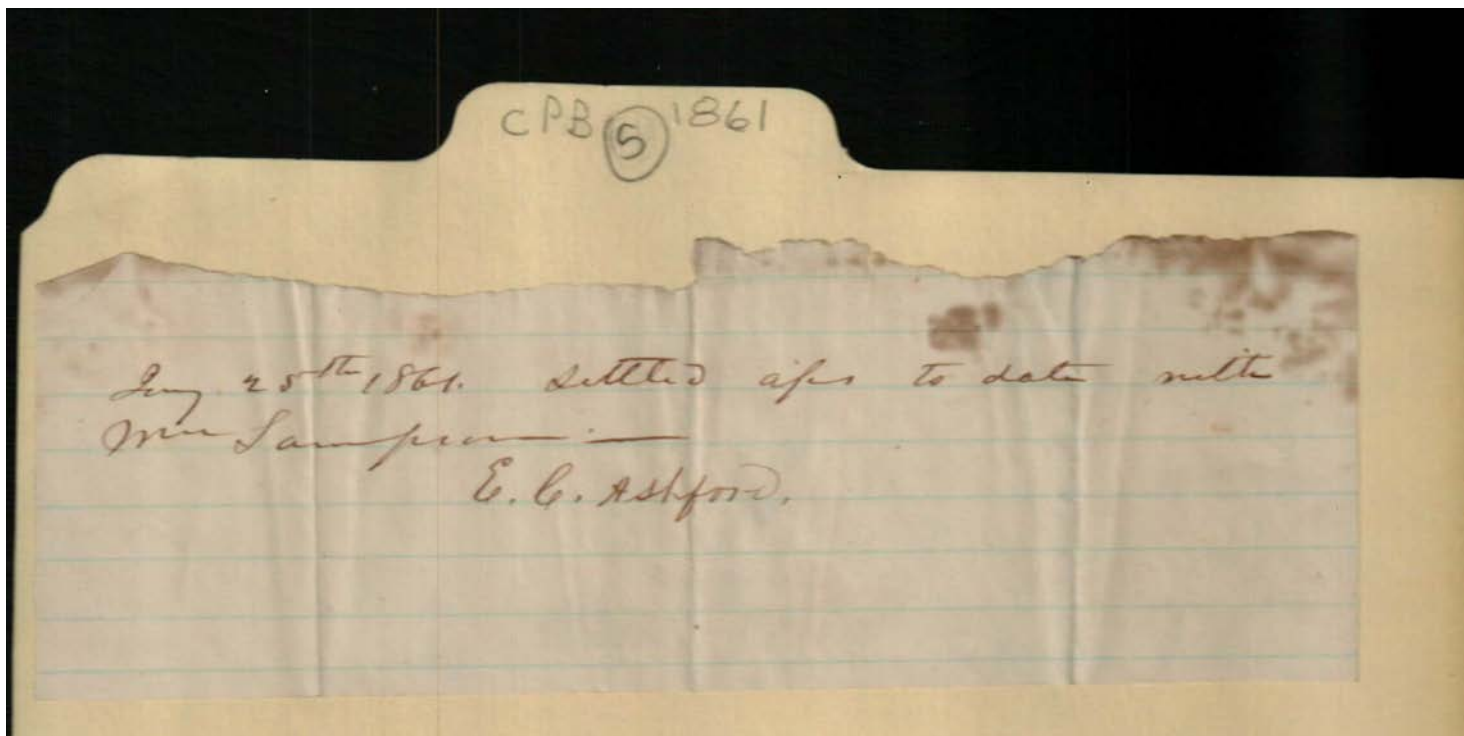 CPB (5) 1861
25th 1861. Settled to date with
Sampson —
E. C. Ashford.